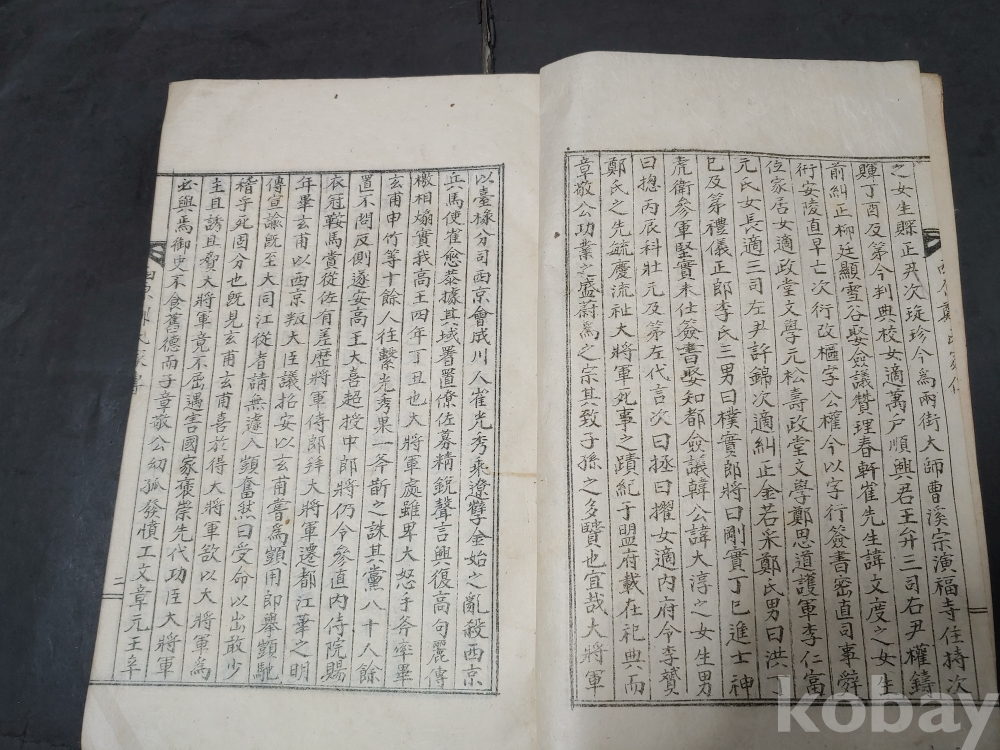 之女生縣正尹次琁珍今爲兩街大師曹溪宗演福寺住持次
暉丁酉及第今判典校女適萬戶順興君王升三司右尹權鑄
前糾正柳廷顯雪谷娶僉議贊理春軒崔先生諱文度之女生
衍安陵直早亡次衍改樞字公權今以字行簽書密直司事舜
位家居女適政堂文學元松壽政堂文學鄭思道護軍李仁富
元氏女長適三司左尹許錦次適糾正金若采鄭氏男曰洪丁
巳及第禮儀正郎李氏三男曰樸實郎將曰剛實丁巳進士神
虎衛參軍堅實未仕簽書娶知都僉議韓公諱大淳之女生男
曰摠丙辰科壯元及第左代言次曰拯曰擢女適內府令李贇
鄭氏之先毓慶流祉大將軍死事之蹟紀于盟府載在祀典而
章敬公功業之盛蔚爲之宗其致子孫之多賢也宜哉大將軍
以臺椽分司西京會成川人崔光秀乘遼孽金始之亂殺西京
兵馬使崔愈恭據其域署置僚佐募精銳聲言興復高句麗傳
檄相煽實我高王四年丁丑也大將軍處雖卑大怒手斧率畢
玄甫申竹等十餘人往繫光秀果一斧斮之誅其黨八十人餘
置不問反側遂安高王大喜超授中郎將仍令參直內侍院賜
衣冠鞍馬賞從佐有差歷將軍侍郎拜大將軍遷都江華之明
年畢玄甫以西京叛大臣議招安以玄甫嘗爲顗用卽擧顗馳
傳宣諭旣至大同江從者請無遽入顗奮然曰受命以出敢少
稽乎死固分也旣見玄甫玄甫喜於得大將軍欲以大將軍爲
主且誘且脅大將軍竟不屈遇害國家褒崇先代功臣大將軍
必與焉御史不食舊德而子章敬公幼孤發憤工文章元王辛
二
kobay